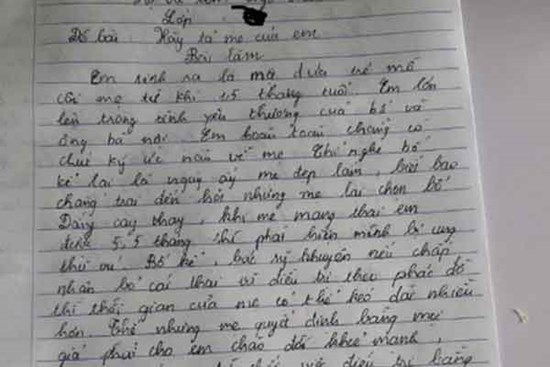 Lớp
Đề bài: Hãy tả mẹ của em
Bài làm
Em sinh ra là một đứa trẻ mồ
côi mẹ từ khi 15 tháng tuổi. Em lớn
lên trong tình yêu thương của bố và
ông bà nội. Em hoàn toàn chẳng có
chút ký ức nào về mẹ. Chỉ nghe bố
kể lại là ngày ấy mẹ đẹp lắm, biết bao
chàng trai đến hỏi nhưng mẹ lại chọn bố
Đắng cay thay, khi mẹ mang thai em
được 5,5 tháng thì phát hiện mình bị ung
thư vú. Bố kể, bác sỹ khuyên nếu chấp
nhận bỏ cái thai và điều trị theo phác đồ
thì thời gian của mẹ có thể kéo dài nhiều
hơn. Thế nhưng mẹ quyết định bằng mọi
giá phải cho em chào đời khỏe mạnh,
điều trị bằng